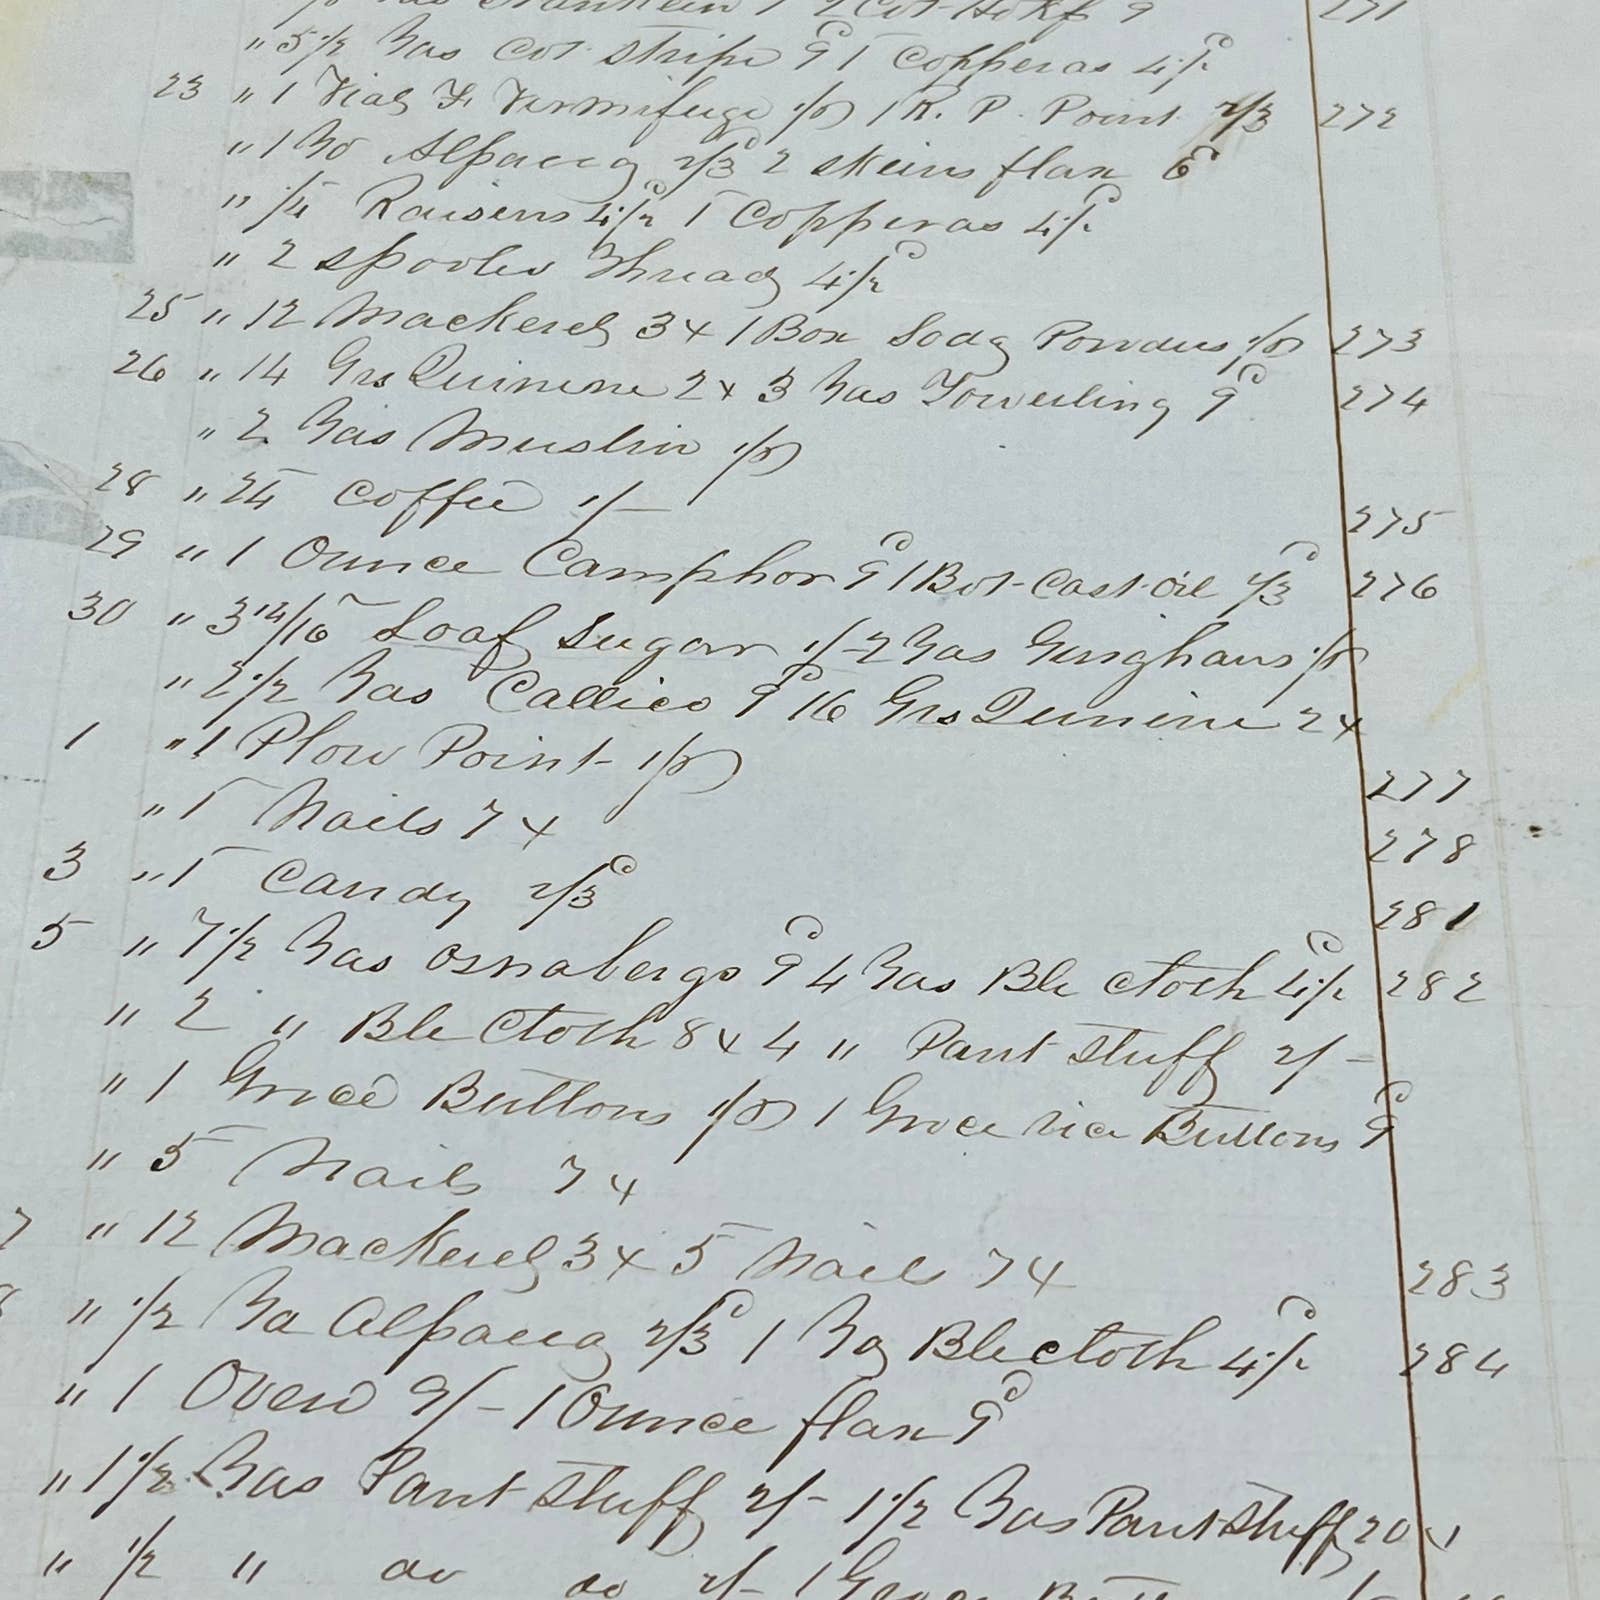 2 Cot Hdkf 9 271
" 5 1/2 Yas Cot Stripe 9d 1 Copperas 4 1/2d
23 " 1 Vial F. Vermifuge 1/6 1 R. P. Point 2/3 272
" 1 Yd Alpacca 2/3d 2 skeins flax 6d
" 1/4 Raisens 4 1/2d 1 Copperas 4 1/2d
" 2 spooles Thread 4 1/2d
25 " 12 Mackerel 3x 1 Box Soda Powders 1/6 273
26 " 14 Grs Quinine 2x 3 Yas Toweling 9d 274
" 2 Yas Muslin 1/6
28 " 24 Coffee 1/- 275
29 " 1 Ounce Camphor 9d 1 Bot-Cast-Oil 2/3d 276
30 " 3 14/16 Loaf Sugar 1/- 2 Yas Gingham 1/6
" 2 1/2 Yas Callico 9d 16 Grs Quinine 2x
1 " 1 Plow Point 1/6 277
" 1 Nails 7x 278
3 " 1 Candy 2/3d 281
5 " 7 1/2 Yas Osnabergs 9d 4 Yas Ble Cloth 4 1/2d 282
" 2 " Ble Cloth 8x 4 " Pant Stuff 2/-
" 1 Groce Buttons 1/6 1 Groce Buttons 9d
" 5 Nails 7x
7 " 12 Mackerel 3x 5 Nails 7x 283
8 " 1/2 Ya Alpacca 2/3d 1 Ya Ble Cloth 4 1/2d 284
" 1 Oven 9/- 1 Ounce flax 9d
" 1 1/2 Yas Pant Stuff 2/- 1 1/2 Yas Pant Stuff 20x
" 1/2 " do do 2/- 1 Groce